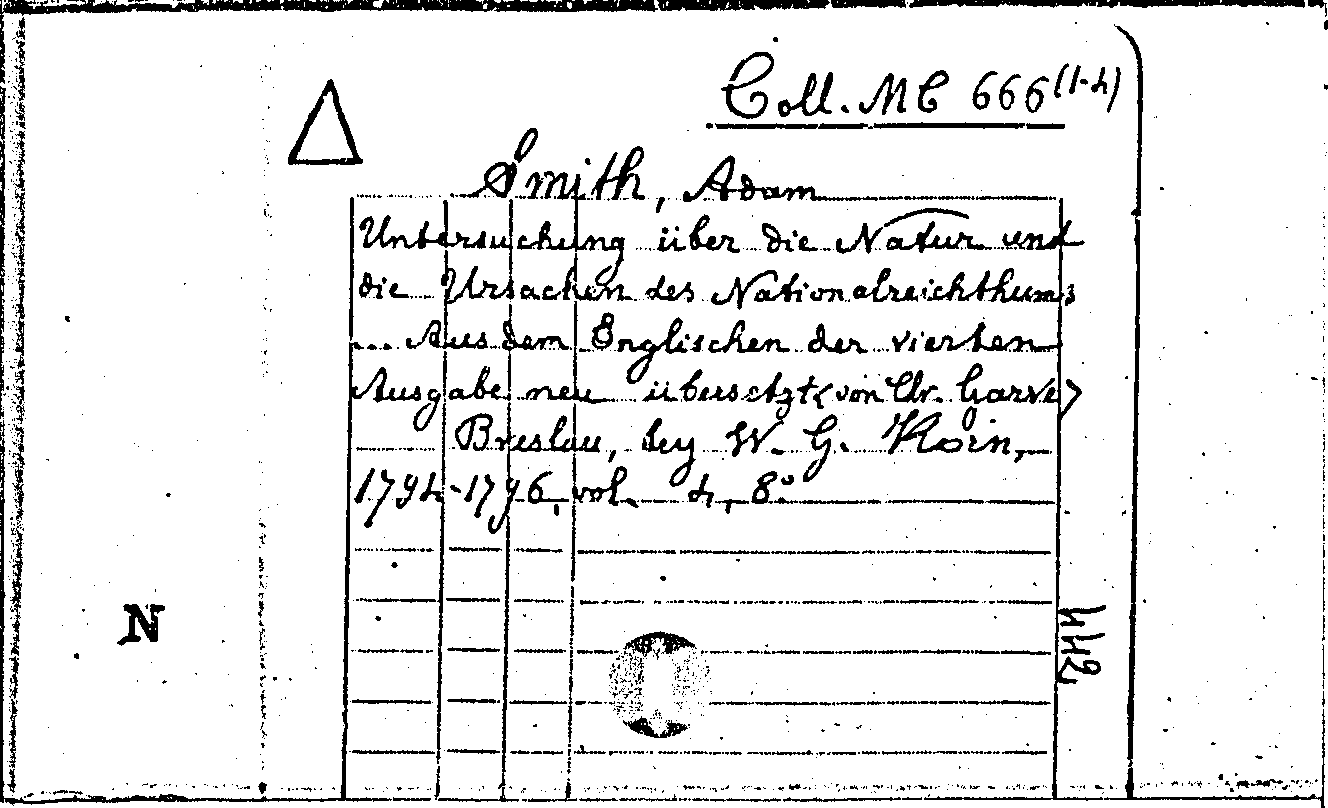 Coll. MC 666 (1-4)
Smith, Adam
Untersuchung über die Natur und
die Ursachen des Nationalreichthums
... Aus dem Englischen der vierten
Ausgabe neu übersetzt <von Chr. Garve>
Breslau, bey W. G. Korn,
1794-1796, vol. 4, 8°
N